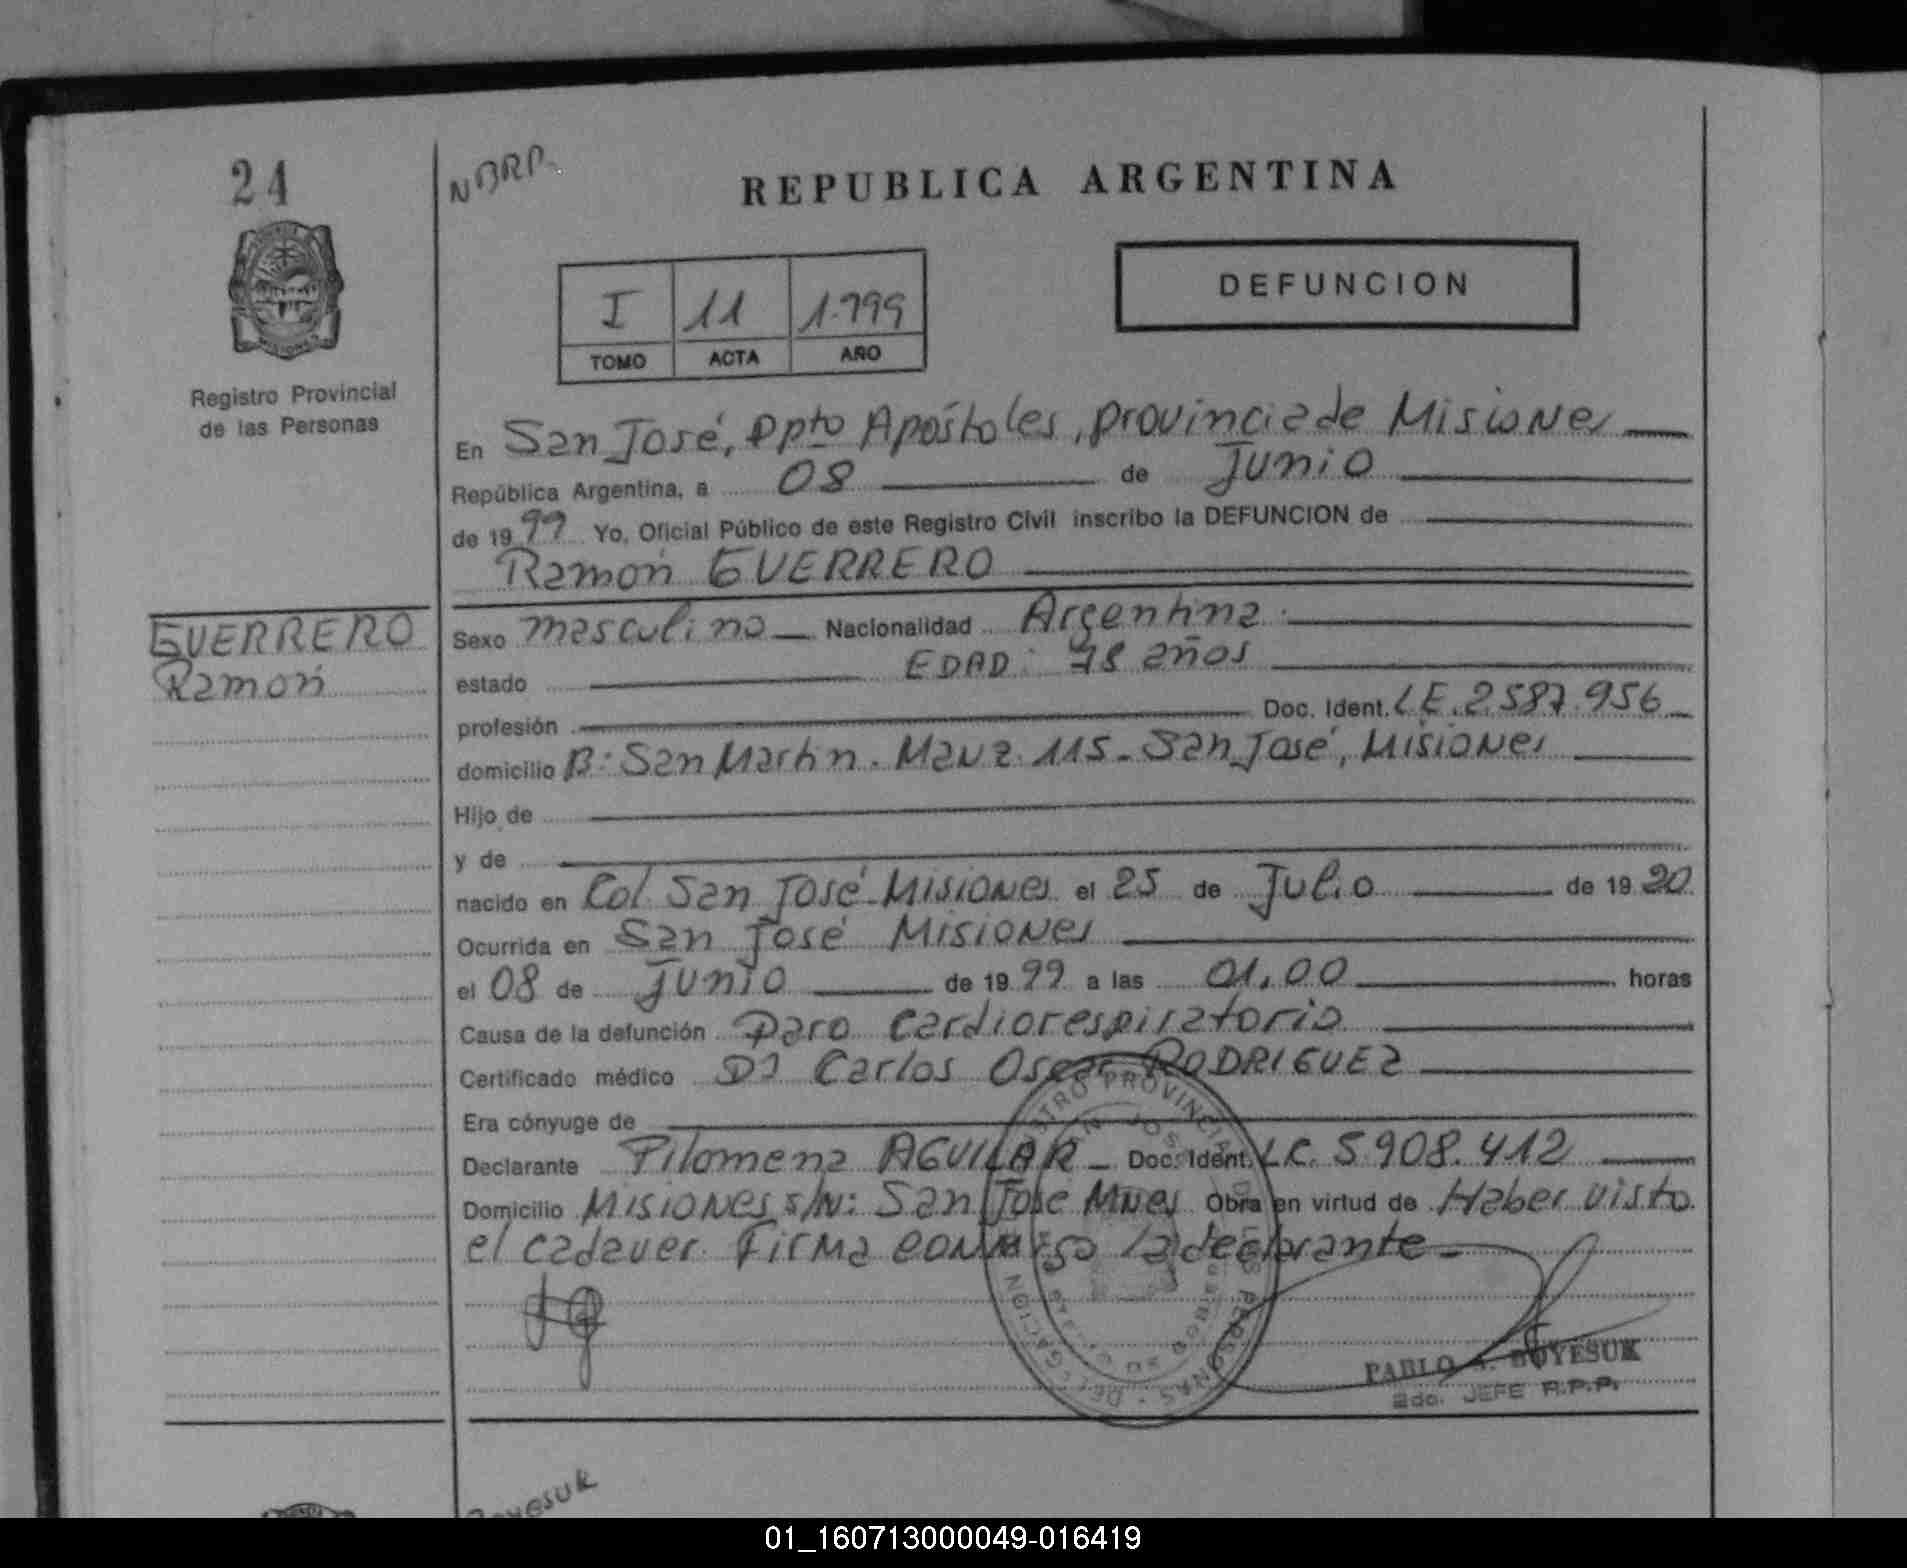 24
NBRP.
REPUBLICA ARGENTINA
DEFUNCION
I 11 1.999
TOMO ACTA AÑO
MISIONES
Registro Provincial
de las Personas
En San José, Dpto Apóstoles, provincia de Misiones
República Argentina, a 08 de Junio
de 1999 Yo, Oficial Público de este Registro Civil inscribo la DEFUNCION de
Ramón GUERRERO
GUERRERO
Ramón
Sexo masculino Nacionalidad Argentina.
estado EDAD: 78 años
profesión Doc. Ident. L.E. 2.587.956
domicilio B: San Martin. Manz. 115 - San José, Misiones
Hijo de
y de
nacido en Col. San José - Misiones el 25 de Julio de 1920
Ocurrida en San José Misiones
el 08 de Junio de 1999 a las 01,00 horas
Causa de la defunción Paro cardiorespiratorio
Certificado médico Dr Carlos Oscar RODRIGUEZ
Era cónyuge de
Declarante Filomena AGUILAR - Doc. Ident. L.C. 5.908.412
Domicilio Misiones s/N: San José Mnes Obra en virtud de Haber visto
el cadaver. Firma conmigo la declarante -
REGISTRO PROVINCIAL DE LAS PERSONAS - DELEGACION
SAN JOSE
PABLO BOYESUK
2do. JEFE R.P.P.
Boyesuk
01_160713000049-016419